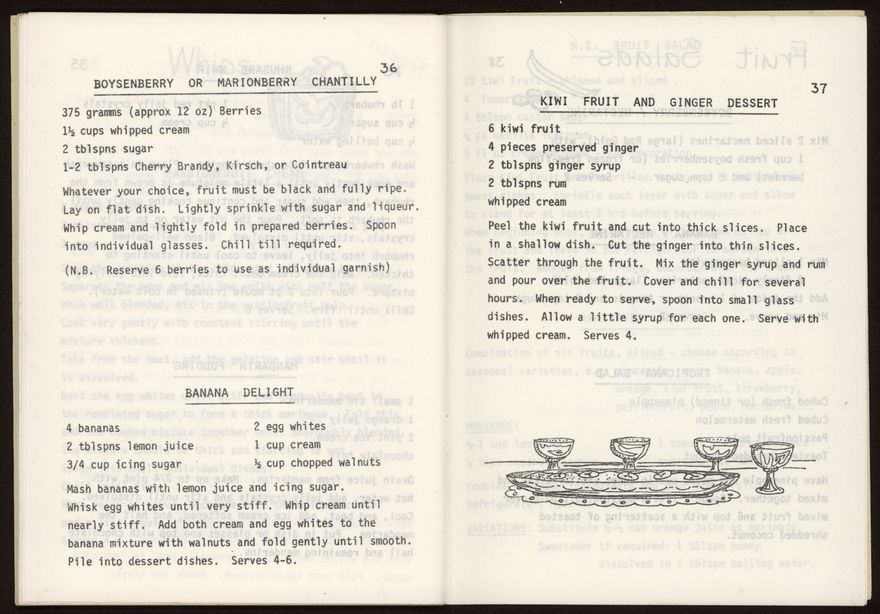 36
BOYSENBERRY OR MARIONBERRY CHANTILLY
375 gramms (approx 12 oz) Berries
1½ cups whipped cream
2 tblspns sugar
1-2 tblspns Cherry Brandy, Kirsch, or Cointreau
Whatever your choice, fruit must be black and fully ripe.
Lay on flat dish. Lightly sprinkle with sugar and liqueur.
Whip cream and lightly fold in prepared berries. Spoon
into individual glasses. Chill till required.
(N.B. Reserve 6 berries to use as individual garnish)
BANANA DELIGHT
4 bananas 2 egg whites
2 tblspns lemon juice 1 cup cream
3/4 cup icing sugar ½ cup chopped walnuts
Mash bananas with lemon juice and icing sugar.
Whisk egg whites until very stiff. Whip cream until
nearly stiff. Add both cream and egg whites to the
banana mixture with walnuts and fold gently until smooth.
Pile into dessert dishes. Serves 4-6.
37
KIWI FRUIT AND GINGER DESSERT
6 kiwi fruit
4 pieces preserved ginger
2 tblspns ginger syrup
2 tblspns rum
whipped cream
Peel the kiwi fruit and cut into thick slices. Place
in a shallow dish. Cut the ginger into thin slices.
Scatter through the fruit. Mix the ginger syrup and rum
and pour over the fruit. Cover and chill for several
hours. When ready to serve, spoon into small glass
dishes. Allow a little syrup for each one. Serve with
whipped cream. Serves 4.